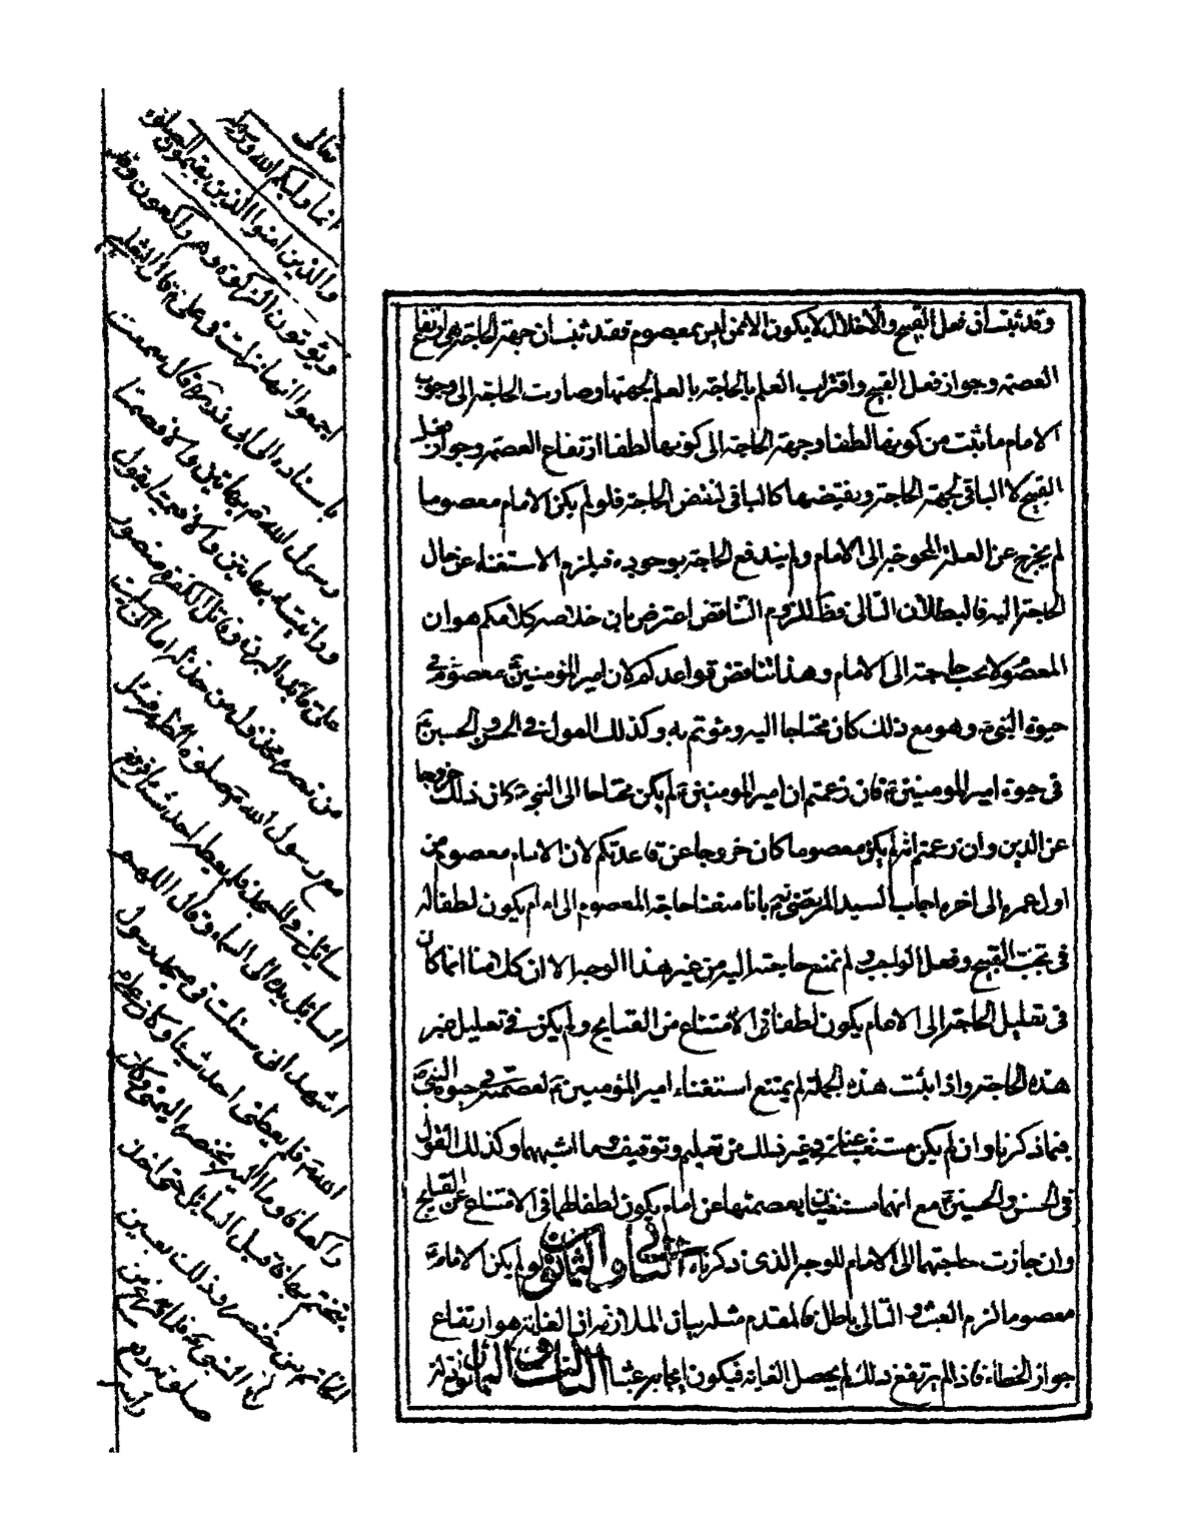 وقد ثبت ان فعل القبيح والاخلال لا يكون الا ممن ليس بمعصوم فقد ثبت ان جهة الحاجة هى ارتفاع
العصمة وجواز فعل القبيح واقترن العلم بالحاجة بالعلم بجهتها وصارت الحاجة الى وجوب
الامام ما ثبت من كونها لطفا وجهة الحاجة الى كونها لطفا ارتفاع العصمة وجواز فعل
القبيح لا الباقى لجهة الحاجة ويقتضيها كالباقى لنقض الحاجة فلو لم يكن الامام معصوما
لم يخرج عن العلة المحوجة الى الامام ولم يندفع الحاجة بوجوده فيلزم الاستغناء عن حال
الحاجة اليه فالبطلان التالى فظ للزوم التناقض اعترض بان خلاصة كلامكم هو ان
المعصوم لا يجب حاجته الى الامام وهذا تناقض قواعدكم لان امير المؤمنين ع معصوم فى
حيوة النبى ص وهو مع ذلك كان محتاجا اليه ومؤتم به وكذلك القول فى الحسن والحسين ع
فى حيوة امير المومنين ع فان زعمتم ان امير المومنين ع لم يكن محتاجا الى النبى ص كان ذلك خروجا
عن الدين وان زعمتم انه لم يكن معصوما كان خروجا عن قاعدتكم لان الامام معصوم من
اول عمره الى اخره اجاب السيد المرتضى بانا منعنا حاجة المعصوم الى امام يكون لطفا له
فى تجنب القبيح وفعل الواجب ولم نمنع حاجته اليه من غير هذا الوجه الا ان كلامنا انما كان
فى تعليل الحاجة الى الامام يكون لطفا فى الامتناع من القبايح ولم يكن فى تعليل غير
هذه الحاجة واذا ثبت هذه الجملة لم يمتنع استغناء امير المؤمنين ع لعصمته فى حيوة النبى ص
فيما ذكرنا وان لم يكن مستغنيا عنه فى غير ذلك من تعليم وتوقيف وما اشبههما وكذلك القول
فى الحسن والحسين ع مع انهما مستغنيان بعصمتهما عن امام يكون لطفا لهما فى الامتناع عن القبايح
وان جازت حاجتهما الى الامام للوجه الذى ذكرناه الثانى والثمانون لو لم يكن الامام ع
معصوما لزم العبث والتالى باطل فالمقدم مثله بيان الملازمة ان الغاية هو ارتفاع
جواز الخطاء فاذا لم يرتفع ذلك لم يحصل الغاية فيكون ايجابه عبثا الثالث والثمانون قوله
تعالى
انما وليكم الله ورسوله
والذين امنوا الذين يقيمون الصلوة
ويؤتون الزكوة وهم راكعون
اجمعوا انها نزلت فى على ع قال الثعلبى
باسناده الى ابى ذر قال سمعت
رسول الله ص بهاتين والا فصمتا
ورايته بهاتين والا فعميتا يقول
على قائد البررة وقاتل الكفرة منصور
من نصره مخذول من خذله اما انى صليت
مع رسول الله ص صلوة الظهر فسئل
سائل فى المسجد فلم يعطه احد شيئا فرفع
السائل يده الى السماء وقال اللهم
اشهد انى سئلت فى مسجد رسول
الله ص فلم يعطنى احد شيئا وكان على ع
راكعا فاوما اليه بخنصره اليمنى وكان
يتختم بها فاقبل السائل حتى اخذ
الخاتم من خنصره وذلك بعين
النبى ص فلما فرغ من
صلوته رفع
راسه